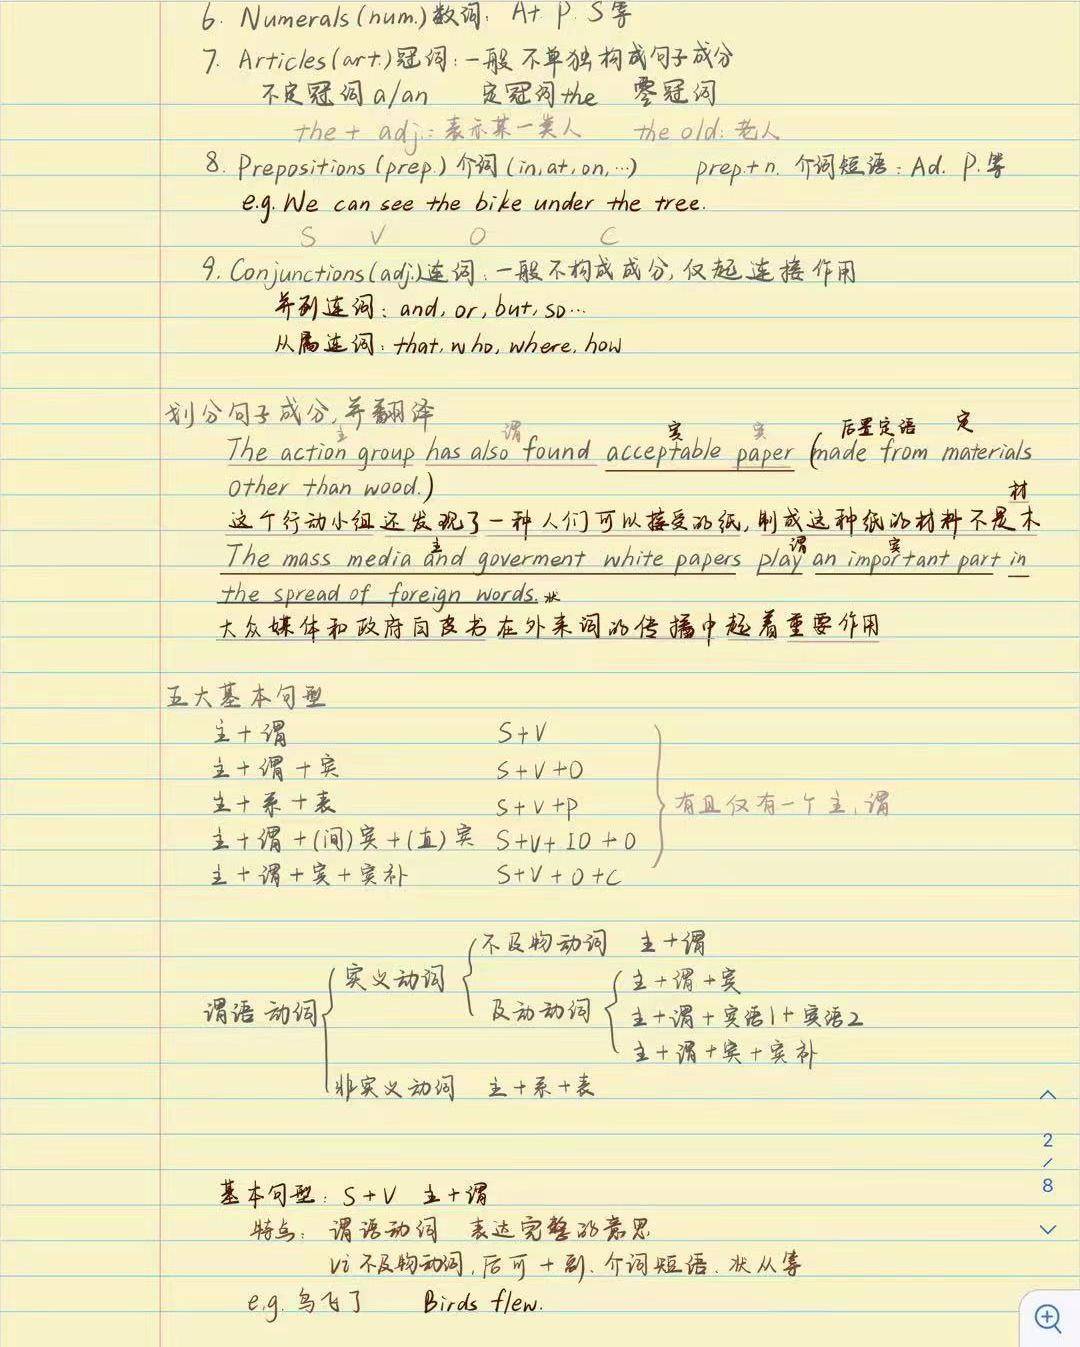 6. Numerals (num.) 数词: At P. S等
7. Articles (art.) 冠词: 一般不单独构成句子成分
不定冠词 a/an 定冠词 the 零冠词
the + adj.: 表示某一类人 the old: 老人
8. Prepositions (prep.) 介词 (in, at, on, …) prep.+n. 介词短语: Ad. P.等
e.g. We can see the bike under the tree.
S V O C
9. Conjunctions (adj.) 连词: 一般不构成成分, 仅起连接作用
并列连词: and, or, but, so…
从属连词: that, who, where, how
划分句子成分, 并翻译
主 谓 宾 宾 后置定语 定
The action group has also found acceptable paper (made from materials
other than wood.)
材
这个行动小组还发现了一种人们可以接受的纸, 制成这种纸的材料不是木
主 谓 宾
The mass media and goverment white papers play an important part in
the spread of foreign words. 状
大众媒体和政府白皮书在外来词的传播中起着重要作用
五大基本句型
主+谓 S+V
主+谓+宾 S+V+O
主+系+表 S+V+P
有且仅有一个主、谓
主+谓+(间)宾+(直)宾 S+V+IO+O
主+谓+宾+宾补 S+V+O+C
不及物动词 主+谓
实义动词
主+谓+宾
谓语动词
及动动词
主+谓+宾语1+宾语2
主+谓+宾+宾补
非实义动词 主+系+表
2
/
8
基本句型: S+V 主+谓
特点: 谓语动词 表达完整的意思
vi 不及物动词, 后可+副、介词短语、状从等
e.g. 鸟飞了 Birds flew.